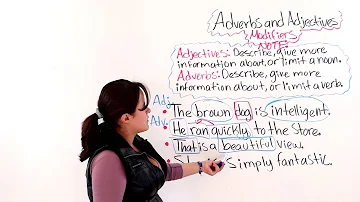 Adverbs and Adjectives
Modifiers
NOTE:
Adjectives: Describe, give more
information about, or limit a noun.
Adverbs: Describe, give more
information about, or limit a verb.
Adj
Adv.
The brown dog is intelligent.
He ran quickly to the store.
That is a beautiful view.
simply fantastic.